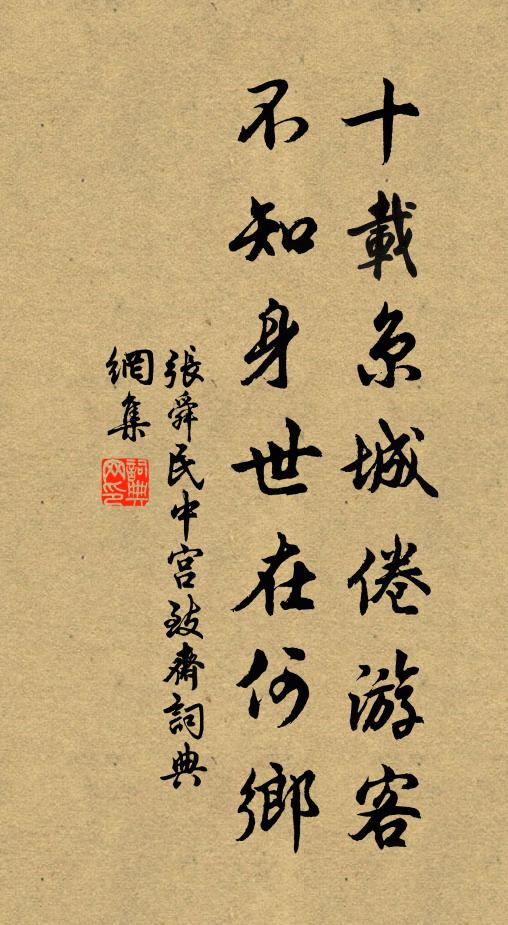 十載京城倦游客
不知身世在何鄉
張舜民中宮致齋詞典
網集
詞典
网印